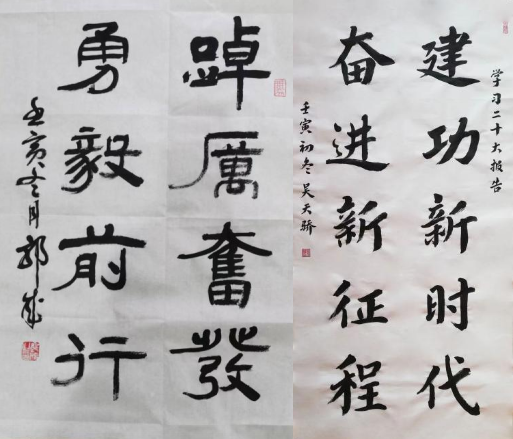 踔厲奮發
勇毅前行
壬寅冬月郭
学习二十大报告
建功新时代
奋进新征程
壬寅初冬吴天骄